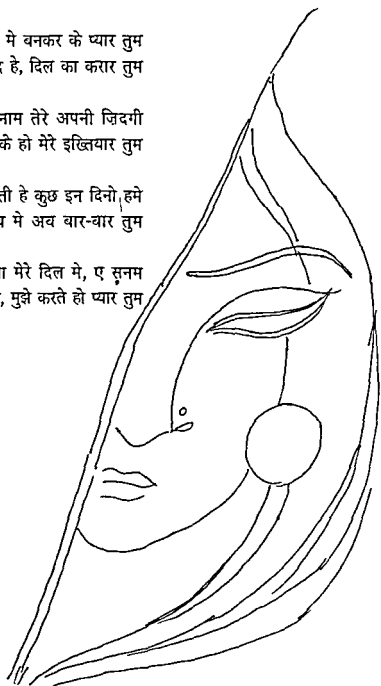 मे बनकर के प्यार तुम
हे, दिल का करार तुम
नाम तेरे अपनी ज़िदगी
के हो मेरे इख्तियार तुम
ती हे कुछ इन दिनो हमे
मे अब बार-बार तुम
मेरे दिल मे, ए सनम
मुझे करते हो प्यार तुम